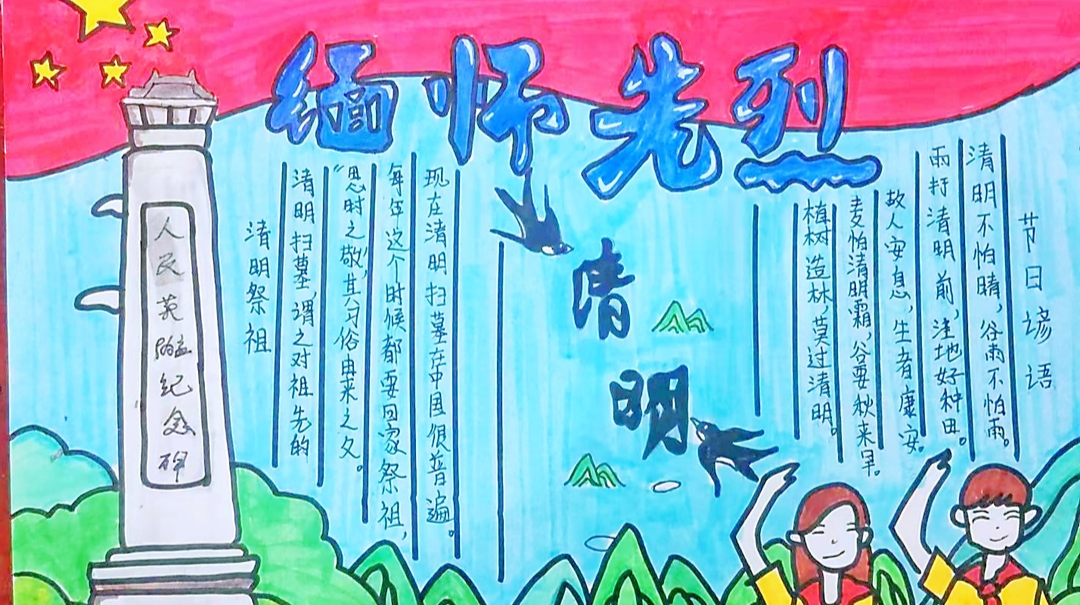 缅师先烈
人民英雄纪念碑
清明祭祖
清明扫墓,谓之对祖先的
“思时之敬”,其习俗由来之久。
每年这个时候都要回家祭祖,
现在清明扫墓在中国很普遍。
清明
节日谚语
清明不怕晴,谷雨不怕雨。
雨打清明前,洼地好种田。
故人安息,生者康安。
麦怕清明霜,谷要秋来旱。
植树造林,莫过清明。